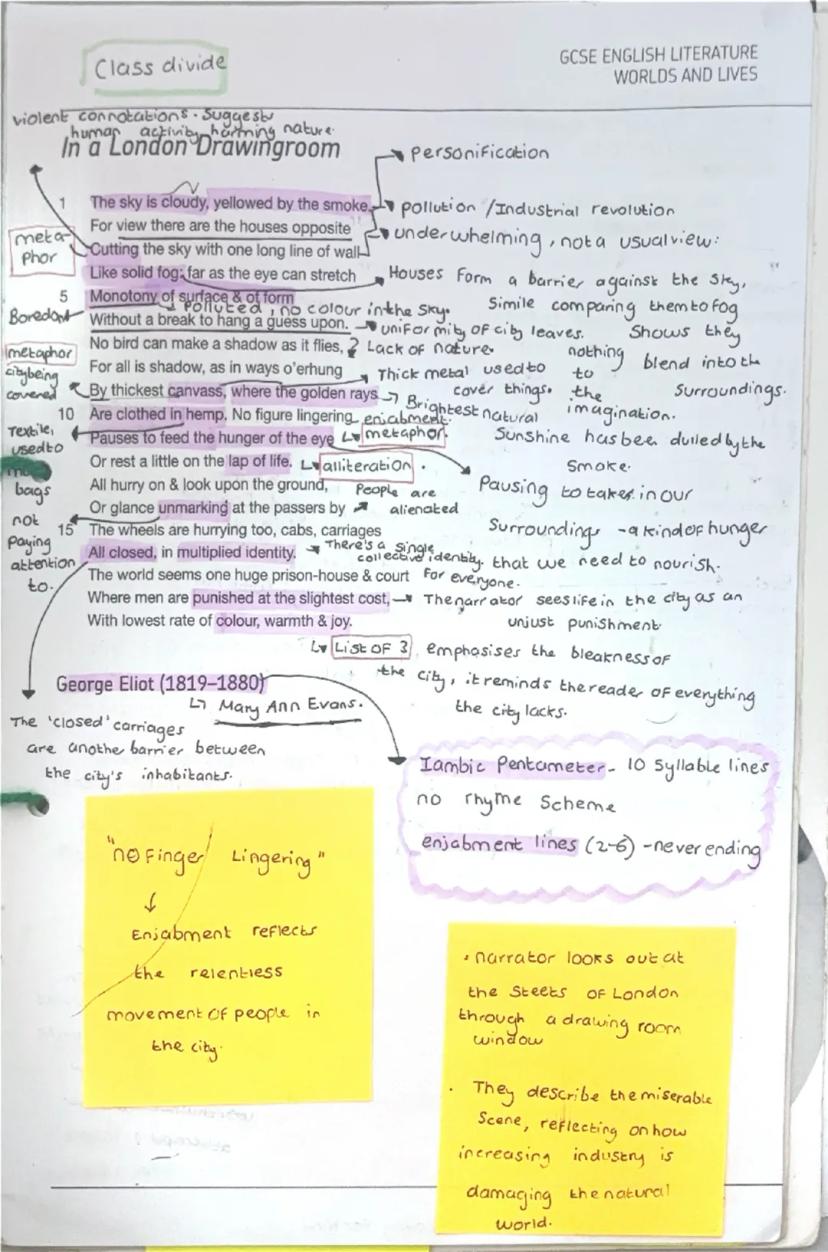 Class divide
GCSE ENGLISH LITERATURE
WORLDS AND LIVES
violent connotations. Suggests
human activity harming nature.
In a London Drawingroom
personification
1 The sky is cloudy, yellowed by the smoke.
pollution / Industrial revolution
For view there are the houses opposite
underwhelming, not a usual view:
meta-
phor
Cutting the sky with one long line of wall
Like solid fog: far as the eye can stretch
Houses form a barrier against the sky,
Simile comparing them to fog
Shows they
blend into the
surroundings.
5 Monotony of surface & of form
Polluted, no colour in the sky.
Boredom
Without a break to hang a guess upon.
uniformity of city leaves
nothing
to
the
imagination.
No bird can make a shadow as it flies,
Lack of nature.
metaphor
city being
covered
For all is shadow, as in ways o'erhung
Thick metal used to
cover things.
By thickest canvass, where the golden rays
Brightest natural
Sunshine has been dulled by the
smoke.
10 Are clothed in hemp. No figure lingering
enjabment.
Textile,
used to
bags
Pauses to feed the hunger of the eye
metaphor.
Or rest a little on the lap of life.
alliteration.
Pausing to take in our
Surroundings - a kind of hunger
that we need to nourish.
All hurry on & look upon the ground,
People are
alienated
Or glance unmarking at the passers by
not
paying
attention
to.
15 The wheels are hurrying too, cabs, carriages
All closed, in multiplied identity.
There's a single
collective identity
for everyone.
The world seems one huge prison-house & court
Where men are punished at the slightest cost,
The narrator sees life in the city as an
unjust punishment
With lowest rate of colour, warmth & joy.
List of 3 emphasises the bleakness of
the city, it reminds the reader of everything
the city lacks.
George Eliot (1819–1880)
Mary Ann Evans.
The 'closed' carriages
are another barrier between
the city's inhabitants.
Iambic Pentameter - 10 Syllable lines
no rhyme Scheme
enjabment lines (2-6) - never ending
"no Finger Lingering"
Enjabment reflects
the relentless
movement of people in
the city.
· narrator looks out at
the Steets of London
through a drawing room
window
· They describe the miserable
Scene, reflecting on how
increasing industry is
damaging the natural
world.